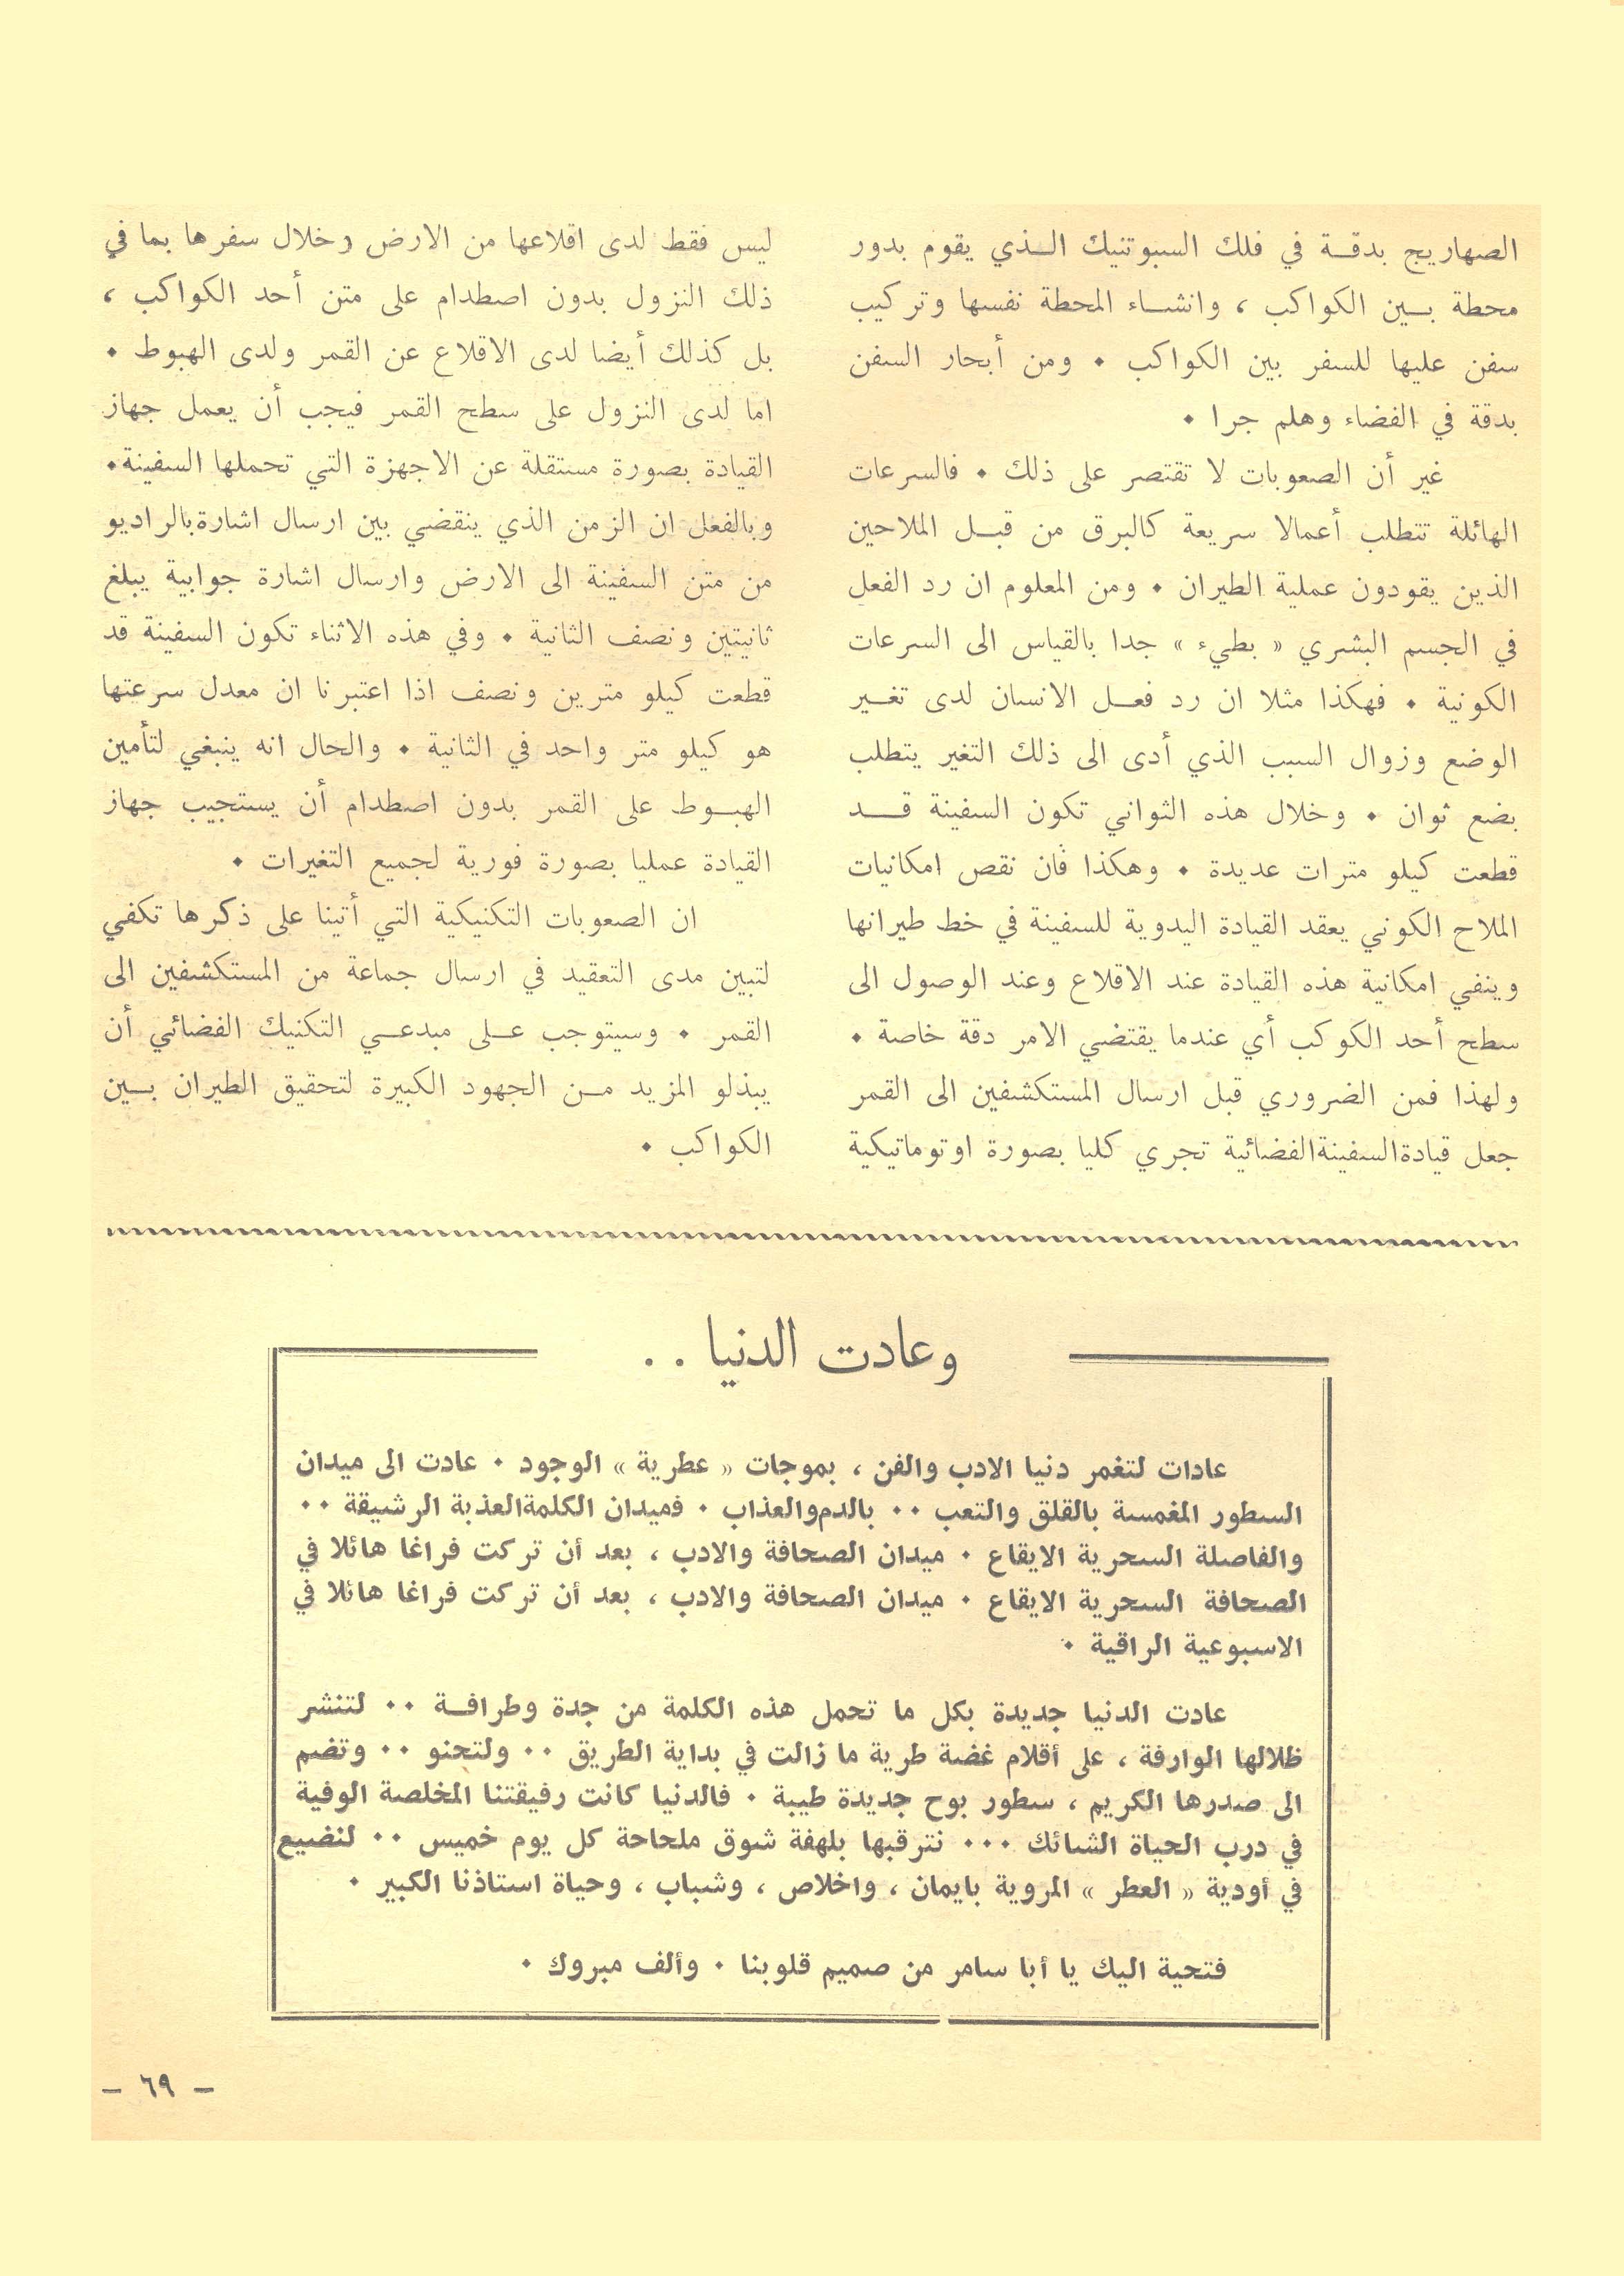 الصهاريج بدقـة في فلك السبوتنيك الـذي يقوم بدور
محطة بـين الكواكب ، وانشـاء المحطة نفسها وتركيب
سفن عليها للسفر بين الكواكب ٠ ومن أبحار السفن
بدقة في الفضاء وهلم جرا ٠
غير أن الصعوبات لا تقتصر على ذلك ٠ فالسرعات
الهائلة تتطلب أعمالا سريعة كالبرق من قبـل الملاحين
الذين يقودون عملية الطيران ٠ ومن المعلوم ان رد الفعل
في الجسم البشري « بطيء » جدا بالقياس الى السرعات
الكونية ٠ فهكذا مثلا ان رد فعـل الانسان لدى تغـير
الوضع وزوال السبب الذي أدى الى ذلك التغير يتطلب
بضع ثوان ٠ وخلال هذه الثواني تكون السفينة قــد
قطعت كيلو مترات عديدة ٠ وهكذا فان نقص امكانيات
الملاح الكوني يعقد القيادة اليدوية للسفينة في خط طيرانها
وينفي امكانية هذه القيادة عند الاقلاع وعند الوصول الى
سطح أحد الكوكب أي عندما يقتضي الامر دقة خاصة ٠
ولهذا فمن الضروري قبل ارسال المستكشفين الى القمر
جعل قيادةالسفينةالفضائية تجري كليا بصورة اوتوماتيكية
ليس فقط لدى اقلاعها من الارض وخلال سفرها بما في
ذلك النزول بدون اصطدام على متن أحد الكواكب ،
بل كذلك أيضا لدى الاقلاع عن القمر ولدى الهبوط ٠
اما لدى النزول على سطح القمر فيجب أن يعمل جهاز
القيادة بصورة مستقلة عن الاجهزة التي تحملها السفينة٠
وبالفعل ان الزمن الذي ينقضي بين ارسال اشارةبالراديو
من متن السفينة الى الارض وارسال اشارة جوابية يبلغ
ثانيتين ونصف الثانية ٠ وفي هذه الاثناء تكون السفينة قد
قطعت كيلو مترين ونصف اذا اعتبرنا ان معدل سرعتها
هو كيلو متر واحد في الثانية ٠ والحال انه ينبغي لتأمين
الهبـوط على القمر بدون اصطدام أن يستجيب جهاز
القيادة عمليا بصورة فورية لجميع التغيرات ٠
ان الصعوبات التكنيكية التي أتينا على ذكرها تكفي
لتبين مدى التعقيد في ارسال جماعة من المستكشفين الى
القمر ٠ وسيتوجب عـلى مبدعـي التكنيك الفضائي أن
يبذلو المزيد مـن الجهود الكبيرة لتحقيق الطيران بـين
الكواكب ٠
وعادت الدنيا . .
عادات لتغمر دنيا الادب والفن ، بموجات « عطرية » الوجود ٠ عادت الى ميدان
السطور المغمسة بالقلق والتعب ٠٠ بالدموالعذاب ٠ فميدان الكلمةالعذبة الرشيقة ٠٠
والفاصلة السحرية الايقاع ٠ ميدان الصحافة والادب ، بعد أن تركت فراغا هائلا في
الصحافة السحرية الايقاع ٠ ميدان الصحافة والادب ، بعد أن تركت فراغا هائلا في
الاسبوعية الراقية ٠
عادت الدنيا جديدة بكل ما تحمل هذه الكلمة من جدة وطرافـة ٠٠ لتنشر
ظلالها الوارفة ، على أقلام غضة طرية ما زالت في بداية الطريق ٠٠ ولتحنو ٠٠ وتضم
الى صدرها الكريم ، سطور بوح جديدة طيبة ٠ فالدنيا كانت رفيقتنا المخلصة الوفية
في درب الحياة الشائك ٠٠٠ نترقبها بلهفة شوق ملحاحة كل يوم خميس ٠٠ لنضيع
في أودية « العطر » المروية بايمان ، واخلاص ، وشباب ، وحياة استاذنا الكبير ٠
فتحية اليك يا أبا سامر من صميم قلوبنا ٠ وألف مبروك ٠
– ٦٩ –